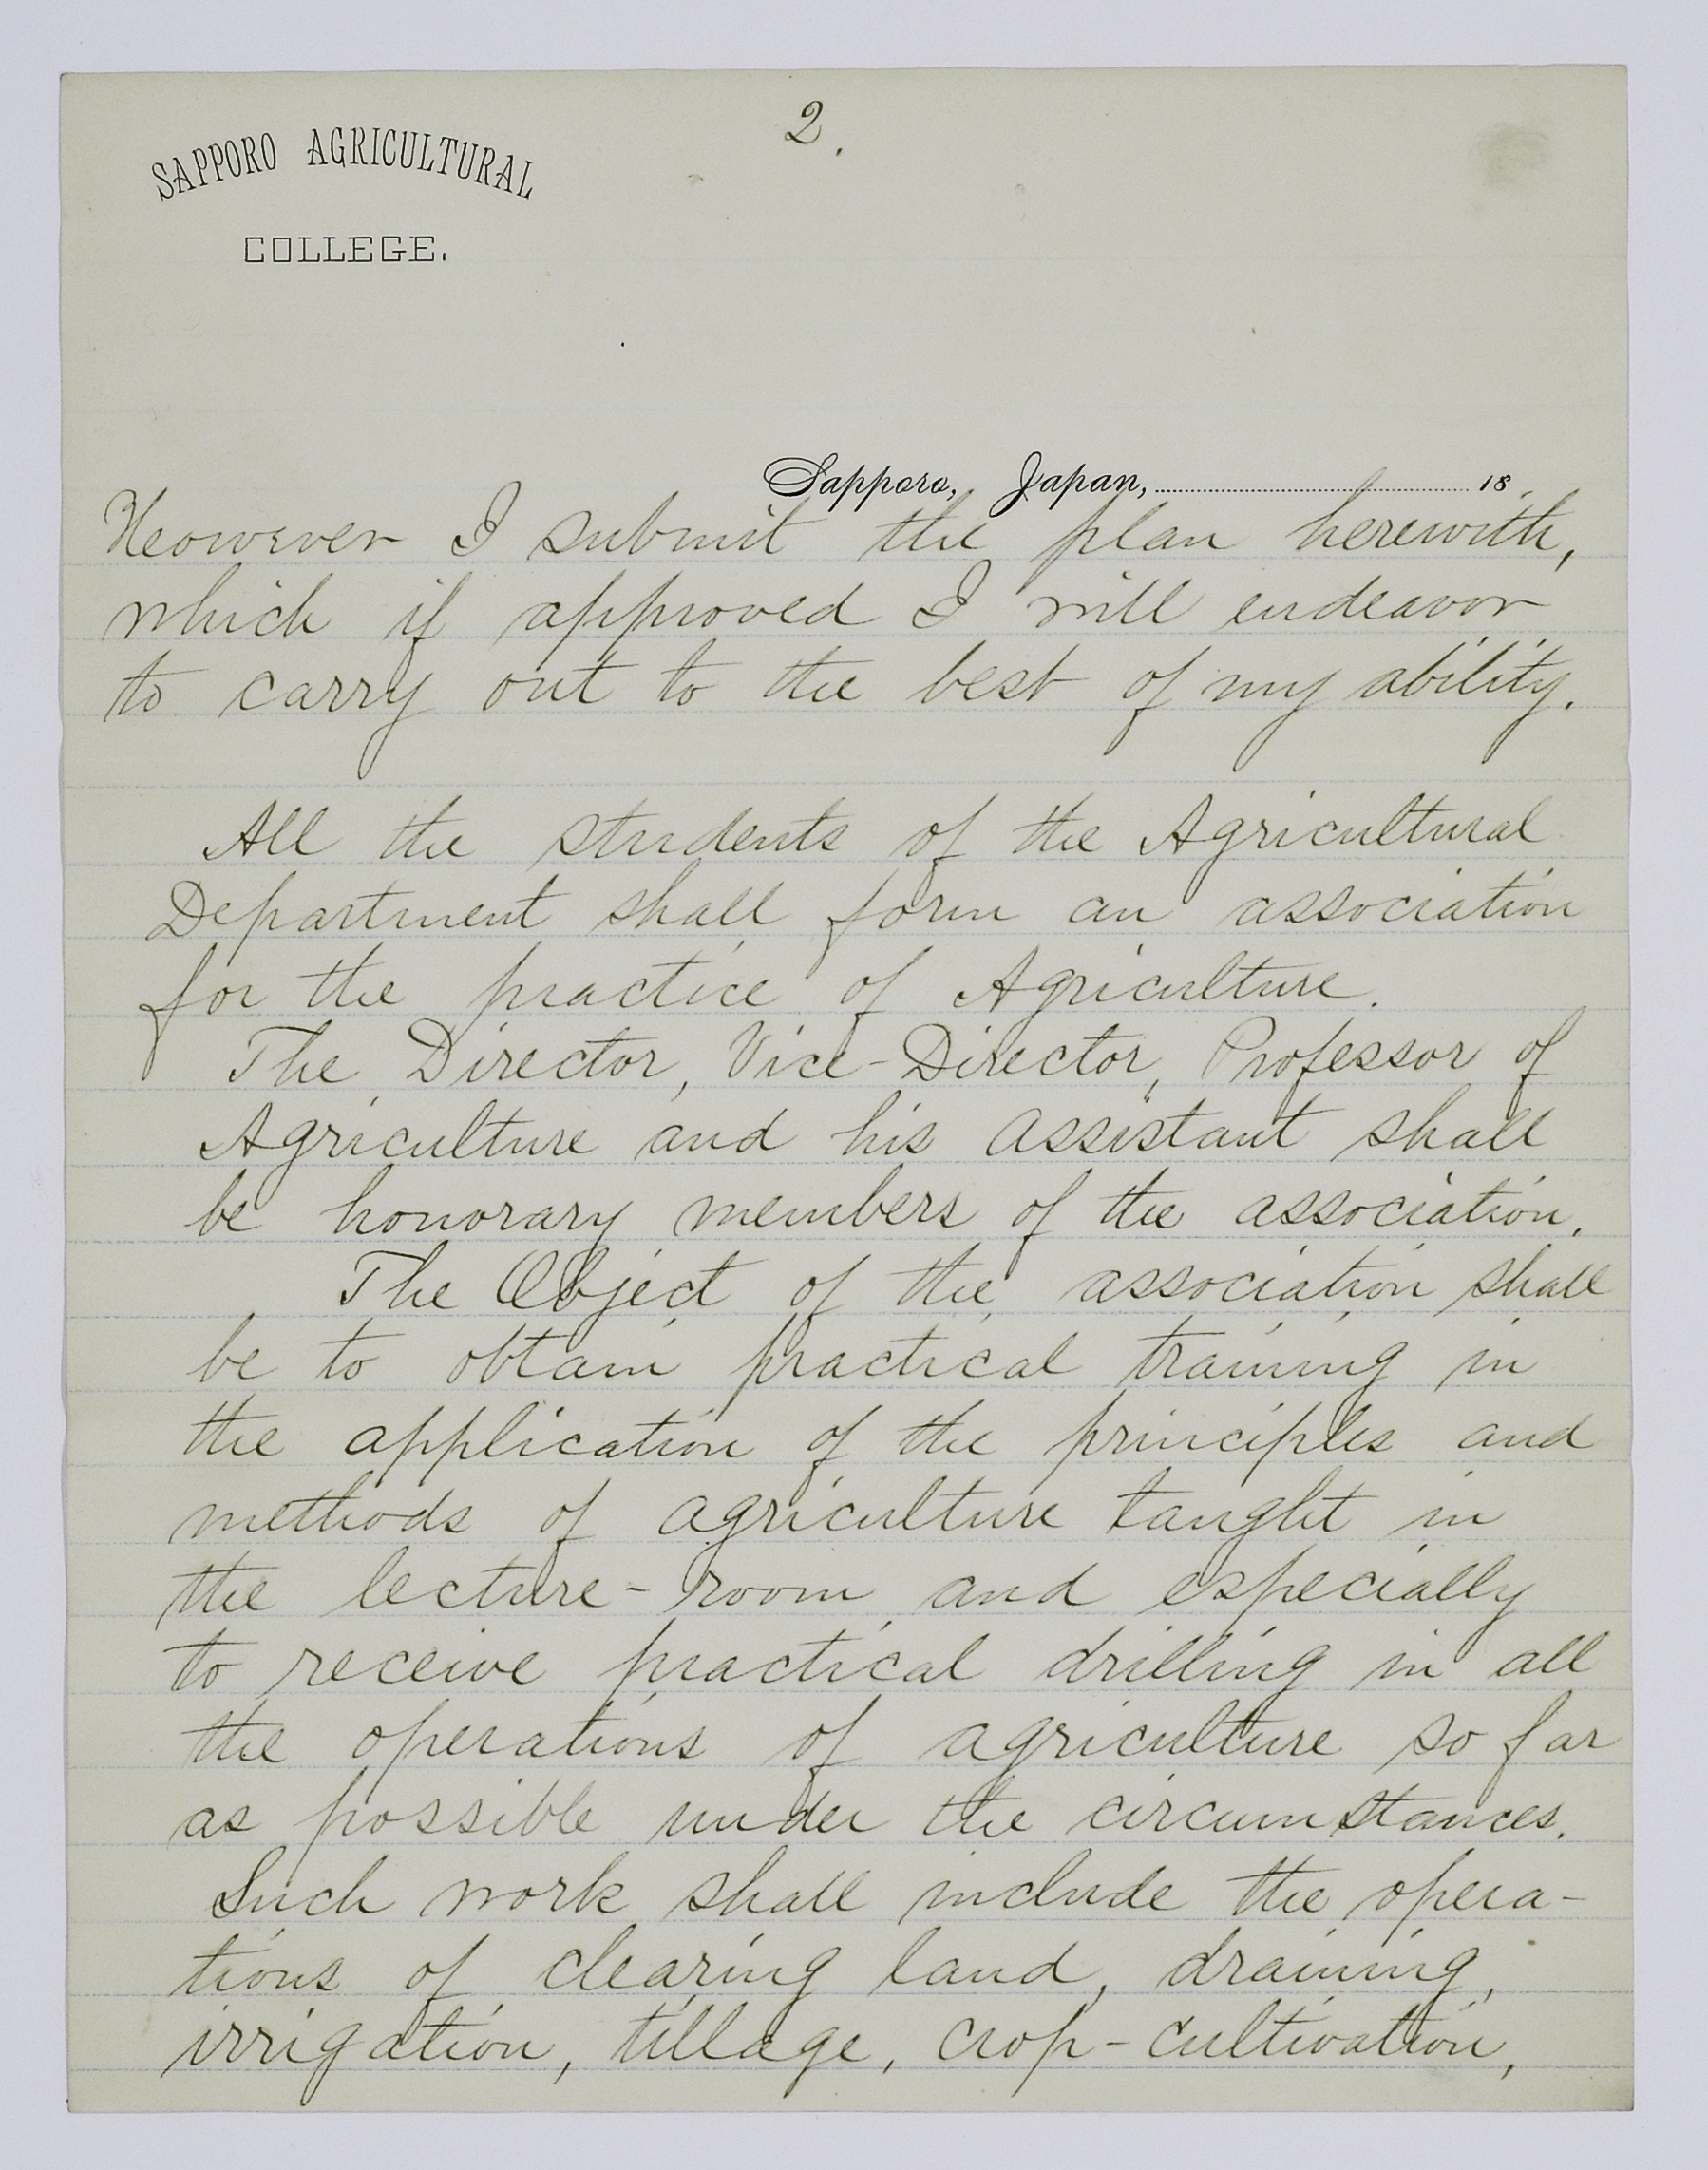 2.
SAPPORO AGRICULTURAL
COLLEGE.
Sapporo, Japan, 18
However I submit the plan herewith,
which if approved I will endeavor
to carry out to the best of my ability.
All the students of the Agricultural
Department shall form an association
for the practice of Agriculture.
The Director, Vice-Director, Professor of
Agriculture and his assistant shall
be honorary members of the association.
The Object of the association shall
be to obtain practical training in
the application of the principles and
methods of agriculture taught in
the lecture-room and especially
to receive practical drilling in all
the operations of agriculture so far
as possible under the circumstances.
Such work shall include the opera-
tions of clearing land, draining,
irrigation, tillage, crop-cultivation,